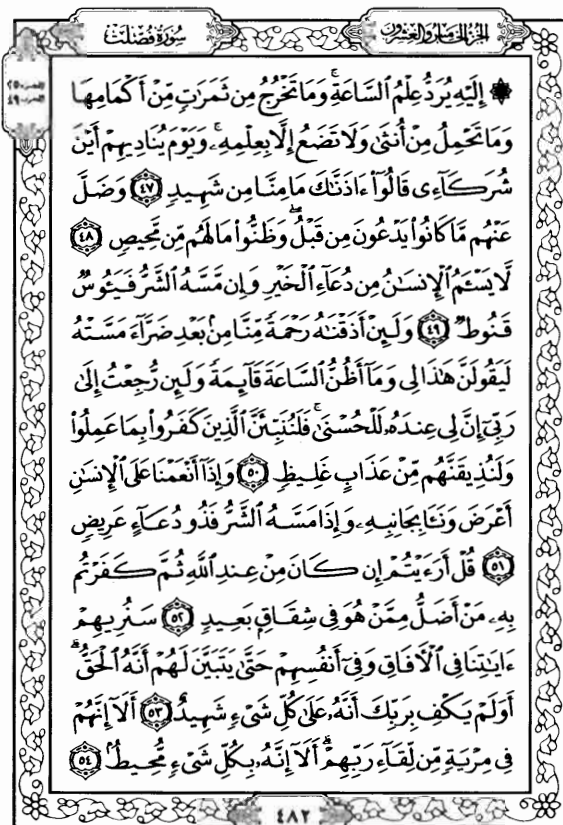 الجزء الخامس والعشرون
سُورَةُ فُصِّلَتْ
۞ إِلَيْهِ يُرَدُّ عِلْمُ ٱلسَّاعَةِۚ وَمَا تَخْرُجُ مِن ثَمَرَٰتٍ مِّنْ أَكْمَامِهَا
وَمَا تَحْمِلُ مِنْ أُنثَىٰ وَلَا تَضَعُ إِلَّا بِعِلْمِهِۦۚ وَيَوْمَ يُنَادِيهِمْ أَيْنَ
شُرَكَآءِى قَالُوٓا۟ ءَاذَنَّٰكَ مَا مِنَّا مِن شَهِيدٍ ٤٧ وَضَلَّ
عَنْهُم مَّا كَانُوا۟ يَدْعُونَ مِن قَبْلُۖ وَظَنُّوا۟ مَا لَهُم مِّن مَّحِيصٍ ٤٨
لَّا يَسْـَٔمُ ٱلْإِنسَٰنُ مِن دُعَآءِ ٱلْخَيْرِ وَإِن مَّسَّهُ ٱلشَّرُّ فَيَـُٔوسٌ
قَنُوطٌ ٤٩ وَلَئِنْ أَذَقْنَٰهُ رَحْمَةً مِّنَّا مِنۢ بَعْدِ ضَرَّآءَ مَسَّتْهُ
لَيَقُولَنَّ هَٰذَا لِى وَمَآ أَظُنُّ ٱلسَّاعَةَ قَآئِمَةً وَلَئِن رُّجِعْتُ إِلَىٰ
رَبِّىٓ إِنَّ لِى عِندَهُۥ لَلْحُسْنَىٰۚ فَلَنُنَبِّئَنَّ ٱلَّذِينَ كَفَرُوا۟ بِمَا عَمِلُوا۟
وَلَنُذِيقَنَّهُم مِّنْ عَذَابٍ غَلِيظٍ ٥٠ وَإِذَآ أَنْعَمْنَا عَلَى ٱلْإِنسَٰنِ
أَعْرَضَ وَنَـَٔا بِجَانِبِهِۦ وَإِذَا مَسَّهُ ٱلشَّرُّ فَذُو دُعَآءٍ عَرِيضٍ
٥١ قُلْ أَرَءَيْتُمْ إِن كَانَ مِنْ عِندِ ٱللَّهِ ثُمَّ كَفَرْتُم
بِهِۦ مَنْ أَضَلُّ مِمَّنْ هُوَ فِى شِقَاقٍۭ بَعِيدٍ ٥٢ سَنُرِيهِمْ
ءَايَٰتِنَا فِى ٱلْـَٔافَاقِ وَفِىٓ أَنفُسِهِمْ حَتَّىٰ يَتَبَيَّنَ لَهُمْ أَنَّهُ ٱلْحَقُّۗ
أَوَلَمْ يَكْفِ بِرَبِّكَ أَنَّهُۥ عَلَىٰ كُلِّ شَىْءٍ شَهِيدٌ ٥٣ أَلَآ إِنَّهُمْ
فِى مِرْيَةٍ مِّن لِّقَآءِ رَبِّهِمْۗ أَلَآ إِنَّهُۥ بِكُلِّ شَىْءٍ مُّحِيطٌۢ ٥٤
٤٨٢